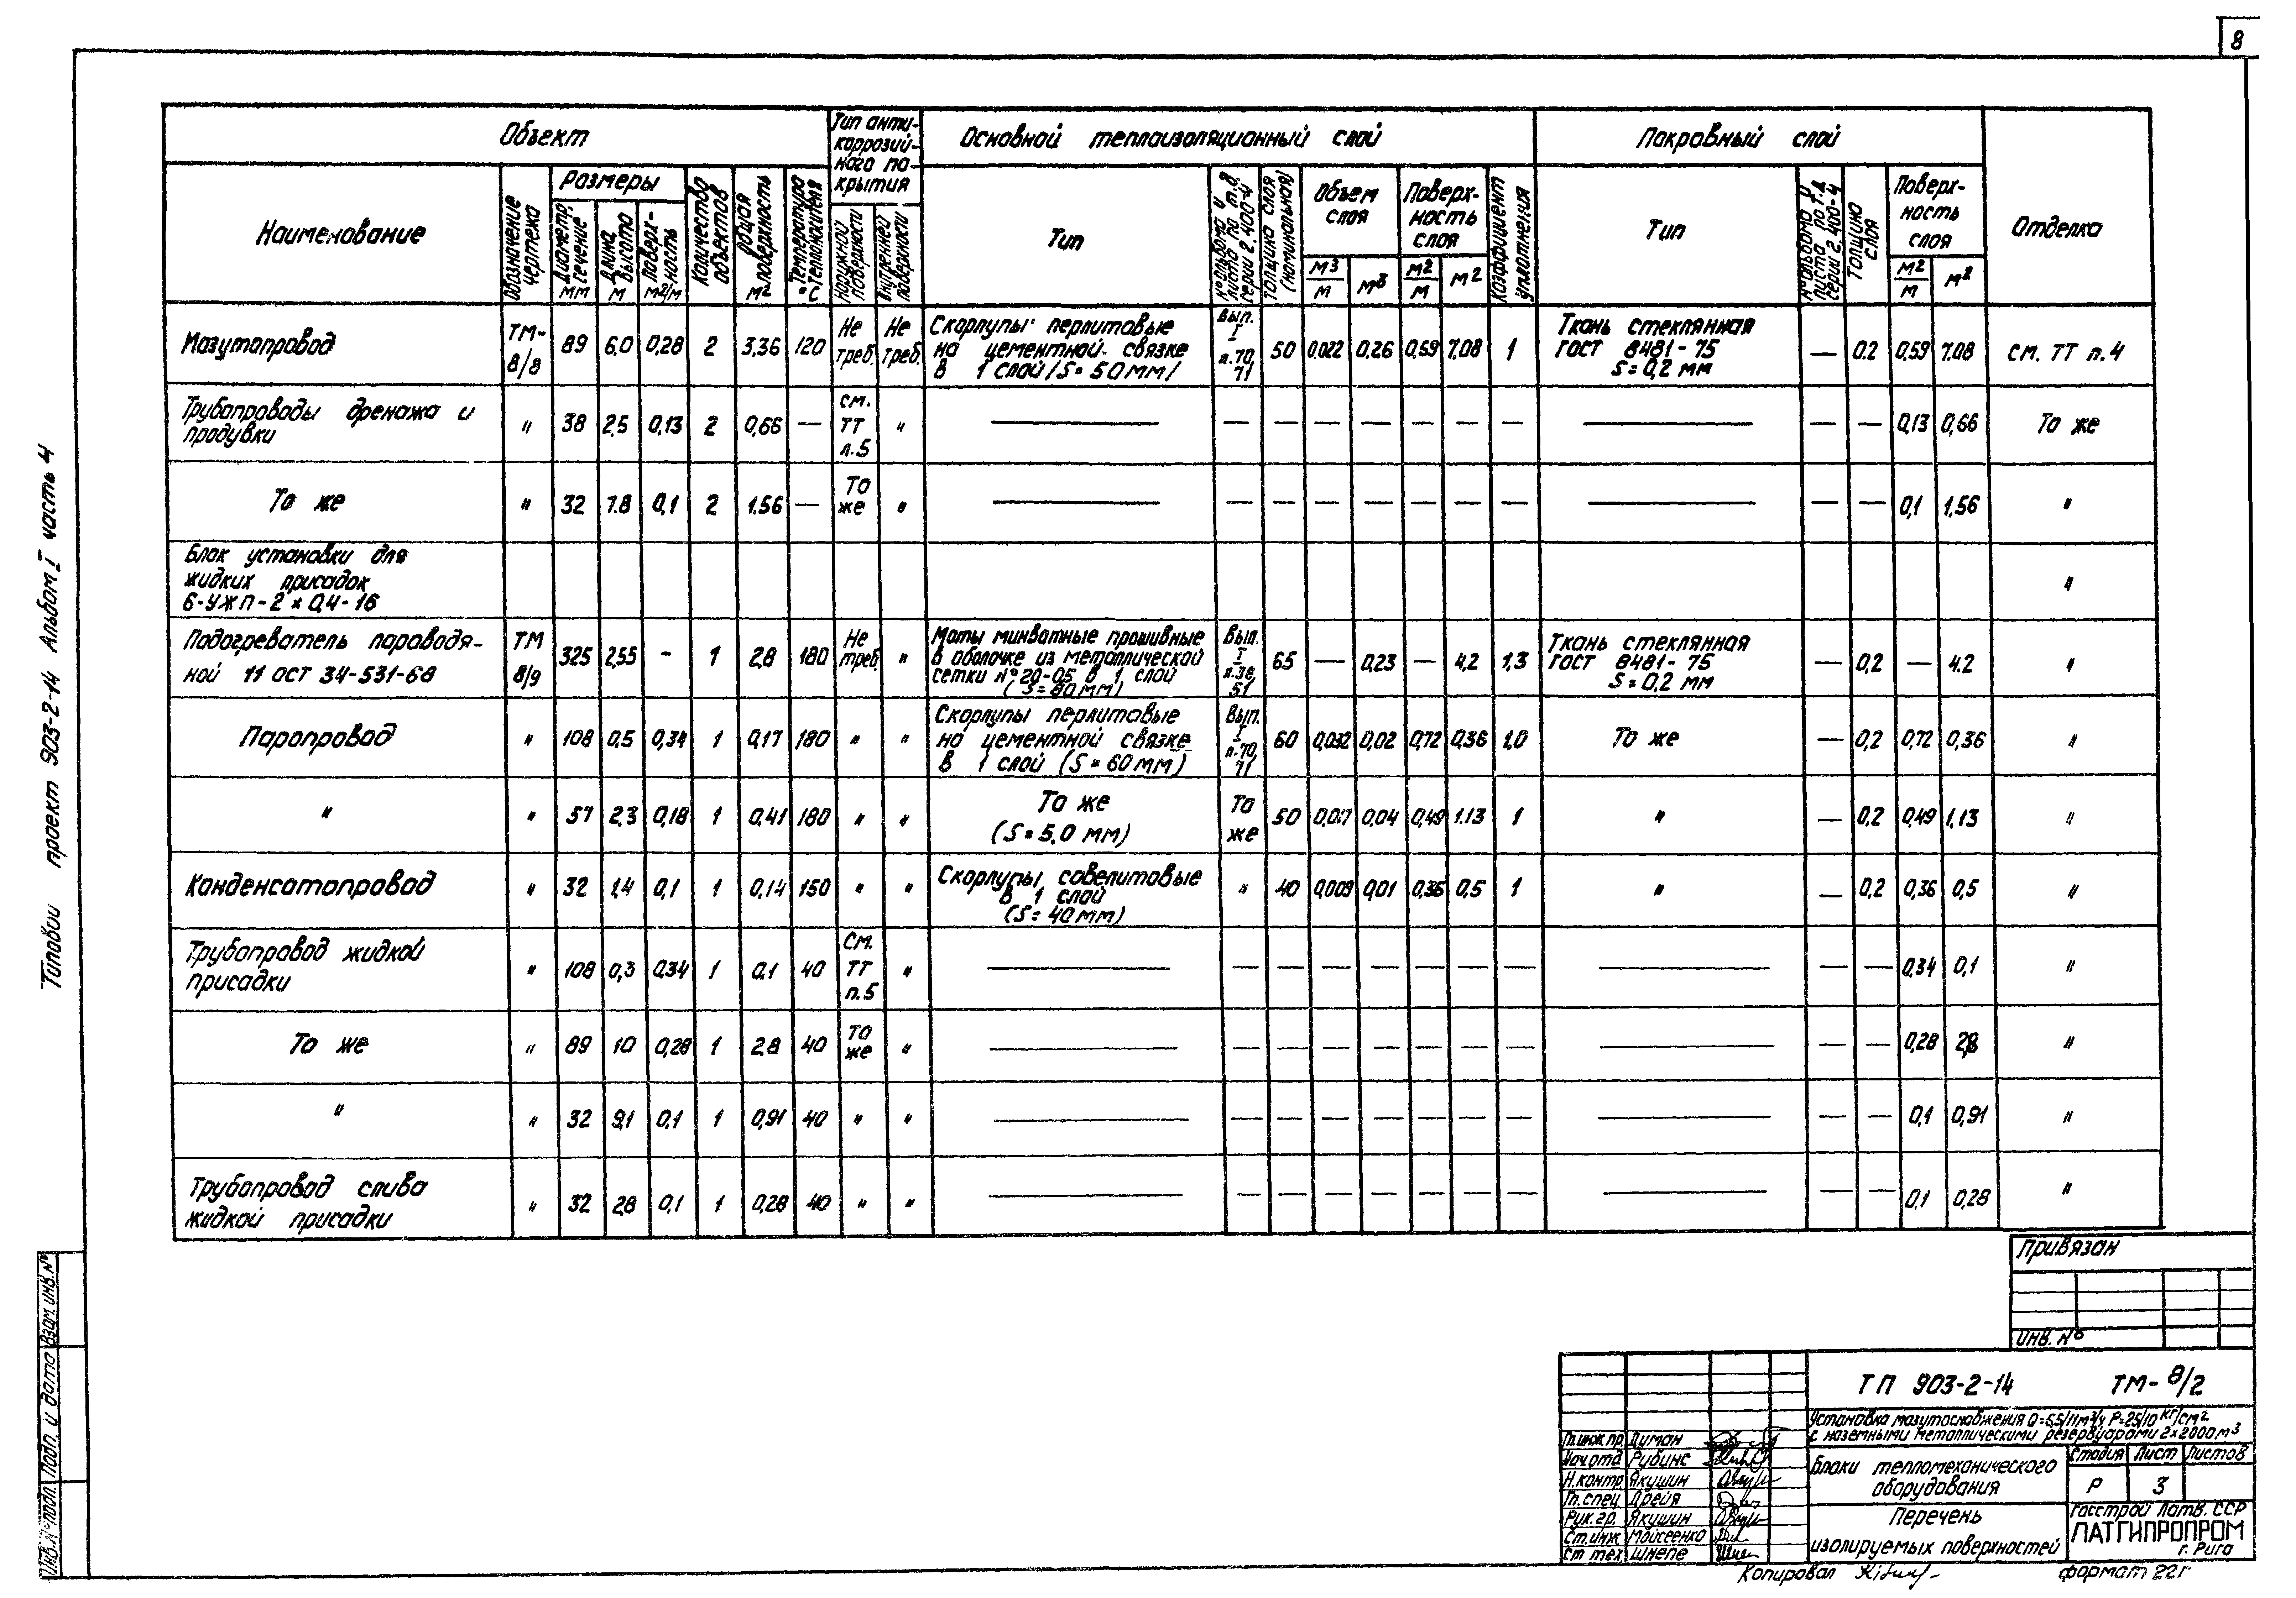 8
Типовой проект 903-2-14 Альбом I часть 4
Объект
Тип анти-
коррозий-
ного по-
крытия
Основной теплоизоляционный слой
Покровный слой
Отделка
Наименование
Обозначение чертежа
Размеры
Диаметр, сечение мм
Длина высота м
Поверх-ность м2/м
Количество объектов
Общая поверхность м2
Температура теплоносителя °С
Наружной поверхности
Внутренней поверхности
Тип
№ альбома и листа по т.д. серии 2.400-4
Толщина слоя (номинальная)
Объем слоя
м3/м м3
Поверх-ность слоя
м2/м м2
Коэффициент уплотнения
Тип
№ альбома и листа по т.д. серии 2.400-4
Толщина слоя
Поверх-ность слоя
м2/м м2
Мазутопровод ТМ-8/8 89 6.0 0,28 2 3,36 120 Не треб. Не треб. Скорлупы перлитовые на цементной связке в 1 слой /S=50мм/ Вып. I л.70, 71 50 0,022 0.26 0,59 7.08 1 Ткань стеклянная ГОСТ 8481-75 S=0,2 мм — 0.2 0,59 7.08 см. ТТ п.4
Трубопроводы дренажа и продувки " 38 2,5 0,13 2 0,66 — см. ТТ п.5 " — — — — — — — — — — — 0,13 0,66 То же
То же " 32 7.8 0,1 2 1.56 — То же " — — — — — — — — — — — 0,1 1,56 "
Блок установки для
жидких присадок
6-УЖП-2×0,4-16 "
Подогреватель пароводя-ной 11 ОСТ 34-531-68 ТМ 8/9 325 2,55 - 1 2,8 180 Не треб. " Маты минватные прошивные в оболочке из металлической сетки №20-05 в 1 слой (S=80мм) Вып. I л.38, 51 65 — 0,23 — 4,2 1,3 Ткань стеклянная ГОСТ 8481-75 S=0,2 мм — 0,2 — 4.2 "
Паропровод " 108 0,5 0,34 1 0,17 180 " " Скорлупы перлитовые на цементной связке в 1 слой (S=60мм) Вып. I л.70, 71 60 0,032 0,02 0,72 0,36 1,0 То же — 0,2 0,72 0,36 "
" " 57 2,3 0,18 1 0,41 180 " " То же (S=5,0 мм) То же 50 0,017 0,04 0,49 1.13 1 " — 0,2 0,49 1,13 "
Конденсатопровод " 32 1,4 0,1 1 0,14 150 " " Скорлупы совелитовые в 1 слой (S=40мм) " 40 0,009 0,01 0,36 0,5 1 " — 0,2 0,36 0,5 "
Трубопровод жидкой присадки " 108 0,3 0,34 1 0,1 40 См. ТТ п.5 " — — — — — — — — — — — 0,34 0,1 "
То же " 89 10 0,28 1 2,8 40 То же " — — — — — — — — — — — 0,28 2,8 "
" " 32 9,1 0,1 1 0,91 40 " " — — — — — — — — — — — 0,1 0,91 "
Трубопровод слива жидкой присадки " 32 2,8 0,1 1 0,28 40 " " — — — — — — — — — — — 0,1 0,28 "
Привязан
Инв. №
ТП 903-2-14 ТМ-8/2
Установка мазутоснабжения Q=5,5/11м³/ч Р=25/10 кг/см2
с наземными металлическими резервуарами 2×2000м3
Гл.инж.пр. Думан
Нач.отд. Рубинс
Н.контр. Якушин
Гл.спец. Дрейя
Рук.гр. Якушин
Ст.инж. Моисеенко
Ст.тех. Шнепе
Блоки тепломеханического
оборудования
Стадия Лист Листов
Р 3
Перечень
изолируемых поверхностей
Госстрой Латв. ССР
ЛАТГИПРОПРОМ
г. Рига
Копировал
формат 22г
Инв.№подл. Подп. и дата Взам.инв.№